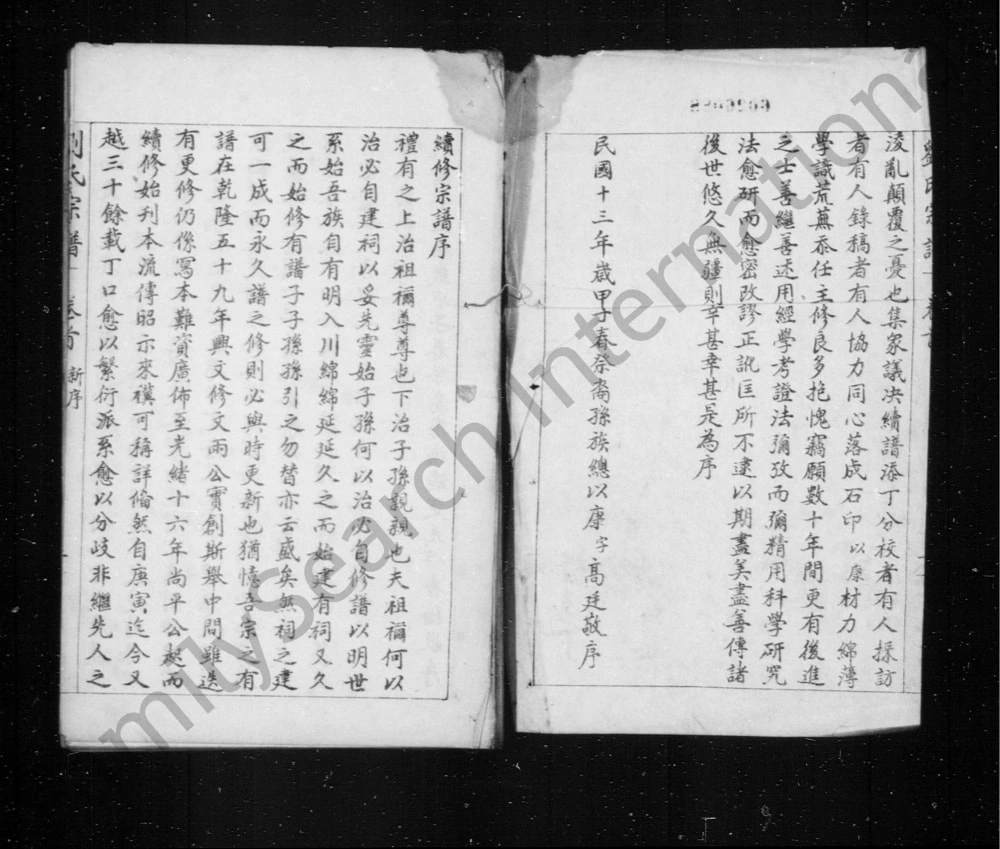 淩亂顛覆之憂也集家議决續譜添丁分校者有人採訪
者有人錄稿者有人協力同心落成石印以康材力綿薄
學識荒蕪忝任主修良多抱愧竊願數十年間更有後進
之士善繼善述用經學考證法彌攷而彌精用科學研究
法愈研而愈密改謬正訛匡所不逮以期盡美盡善傳諸
後世悠久無疆則幸甚幸甚是為序
民國十三年歲甲子春祭裔孫族總以康字高廷敬序
續修宗譜序
禮有之上治祖禰尊尊也下治子孫親親也夫祖禰何以
治必自建祠以妥先靈始子孫何以治必自修譜以明世
系始吾族自有明入川綿綿延延久之而始建有祠又久
之而始修有譜子子孫孫引之勿替亦云盛矣然祠之建
可一成而永久譜之修則必與時更新也猶憶吾宗之有
譜在乾隆五十九年興文修文雨公實創斯舉中間雖迭
有更修仍係寫本難資廣佈至光緒十六年尚平公起而
續修始刋本流傳昭示來禩可稱詳偹然自庚寅迄今又
越三十餘載丁口愈以繁衍派系愈以分歧非繼先人之
劉氏宗譜 卷首 新序
FamilySearch International